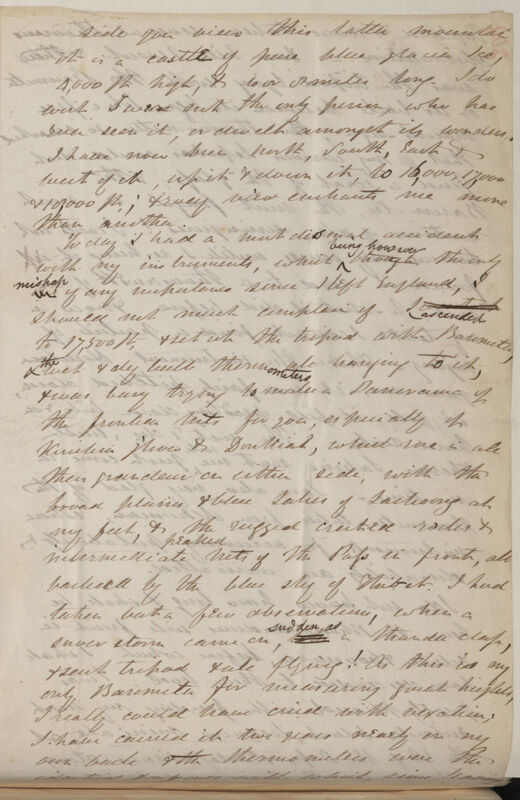 side you view this latter mountain
it is a castle of pure blue glacier Ice,
4,000 ft high, & 6 or 8 miles long I do
wish I were not the only person, who has
ever seen it, or dwelt amongst its wonders.
I have now been North, South, East &
west of it up it & down it, to 16,000, 17,000
& 18,000 ft.; & every view enchants me more
than another.
Today I had a most dismal accident
with my instruments, which being however though the only
mishap of any importance since I left England, I
should not much complain of. I ascended
to 17,500 ft & set up the tripod with Barometer,
& the wet & dry bulb thermometers all hanging to it,
& was busy trying to make a Panorama of
the frontier Mts for you, especially of
Kinchin jhow & Donkiah, which rose in all
their grandeur on either side, with the
broad plains & blue lakes of Lachoong at
my feet, & the rugged crested rocks &
intermediate peaked Mts of the Pass in front, all
backed by the blue sky of Thibet. I had
taken but a few observations, when a
snow storm came on, sudden as a thunder clap,
& sent tripod & all flying! As this is my
only Barometer for measuring great heights,
I really could have cried with vexation:
I have carried it two years nearly on my
own back & the thermometers were the